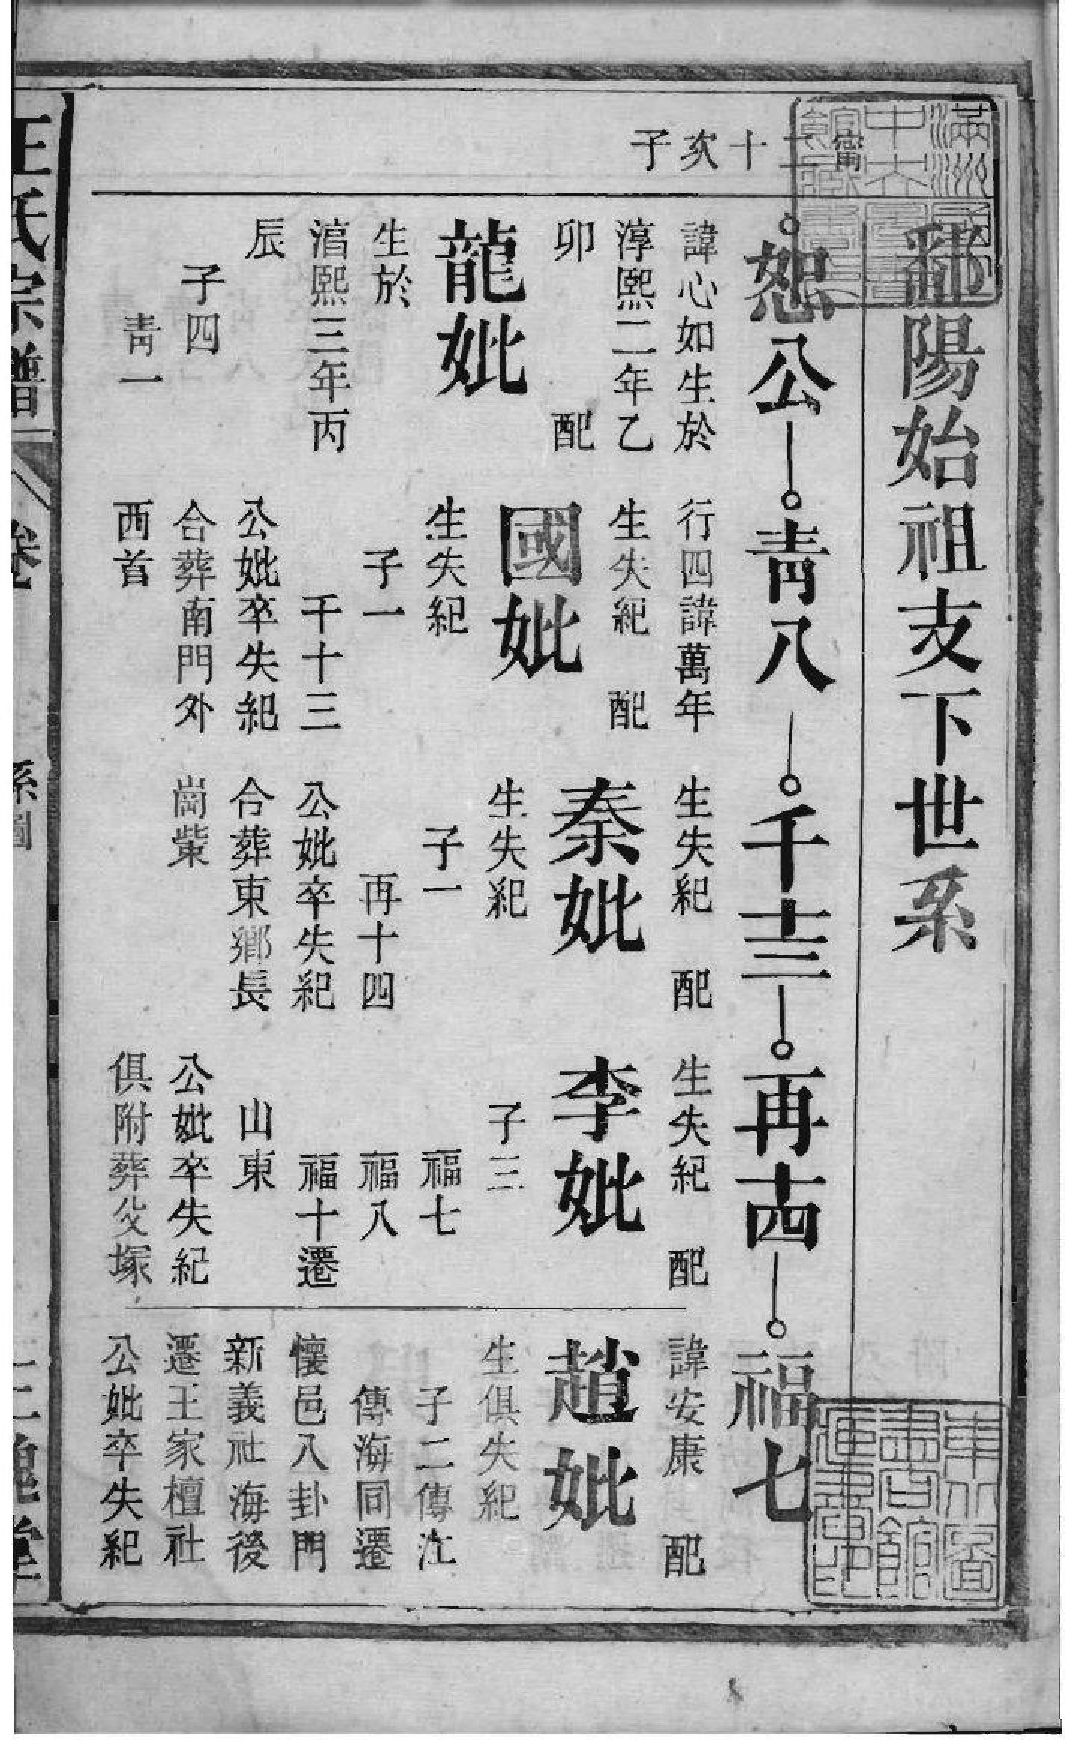 鄱陽始祖支下世系
二十次子
恕公
諱心如生於
淳熙二年乙
卯 配
龍妣
生於
淳熙三年丙
辰
子四
靑一
靑八
行四諱萬年
生失紀 配
國妣
生失紀
子一
千十三
公妣卒失紀
合葬南門外
西首
千十三
生失紀 配
秦妣
生失紀
子一
再十四
公妣卒失紀
合葬東鄉長
崗柴
再十四
生失紀 配
李妣
子三
福七
福八
福十遷
山東
公妣卒失紀
俱附葬父塚
福七
諱安康 配
趙妣
生俱失紀
子二傳江
傳海同遷
懷邑八卦門
新義社海後
遷王家檀社
公妣卒失紀
王氏宗譜
卷
系圖
三槐堂